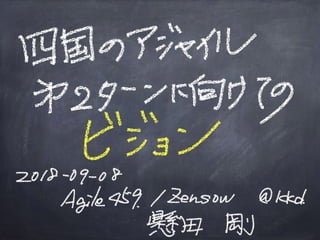 四国のアジャイル
第2ターンに向けての
ビジョン
2018-09-08
Agile459 / Zensow @kkd
懸田 剛